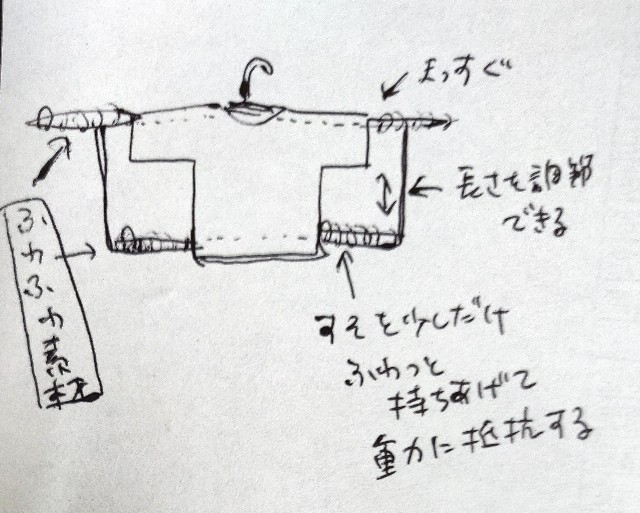 まっすぐ
長さを調節
できる
ふわふわ素材
すそを少しだけ
ふわっと
持ちあげて
重力に抵抗する